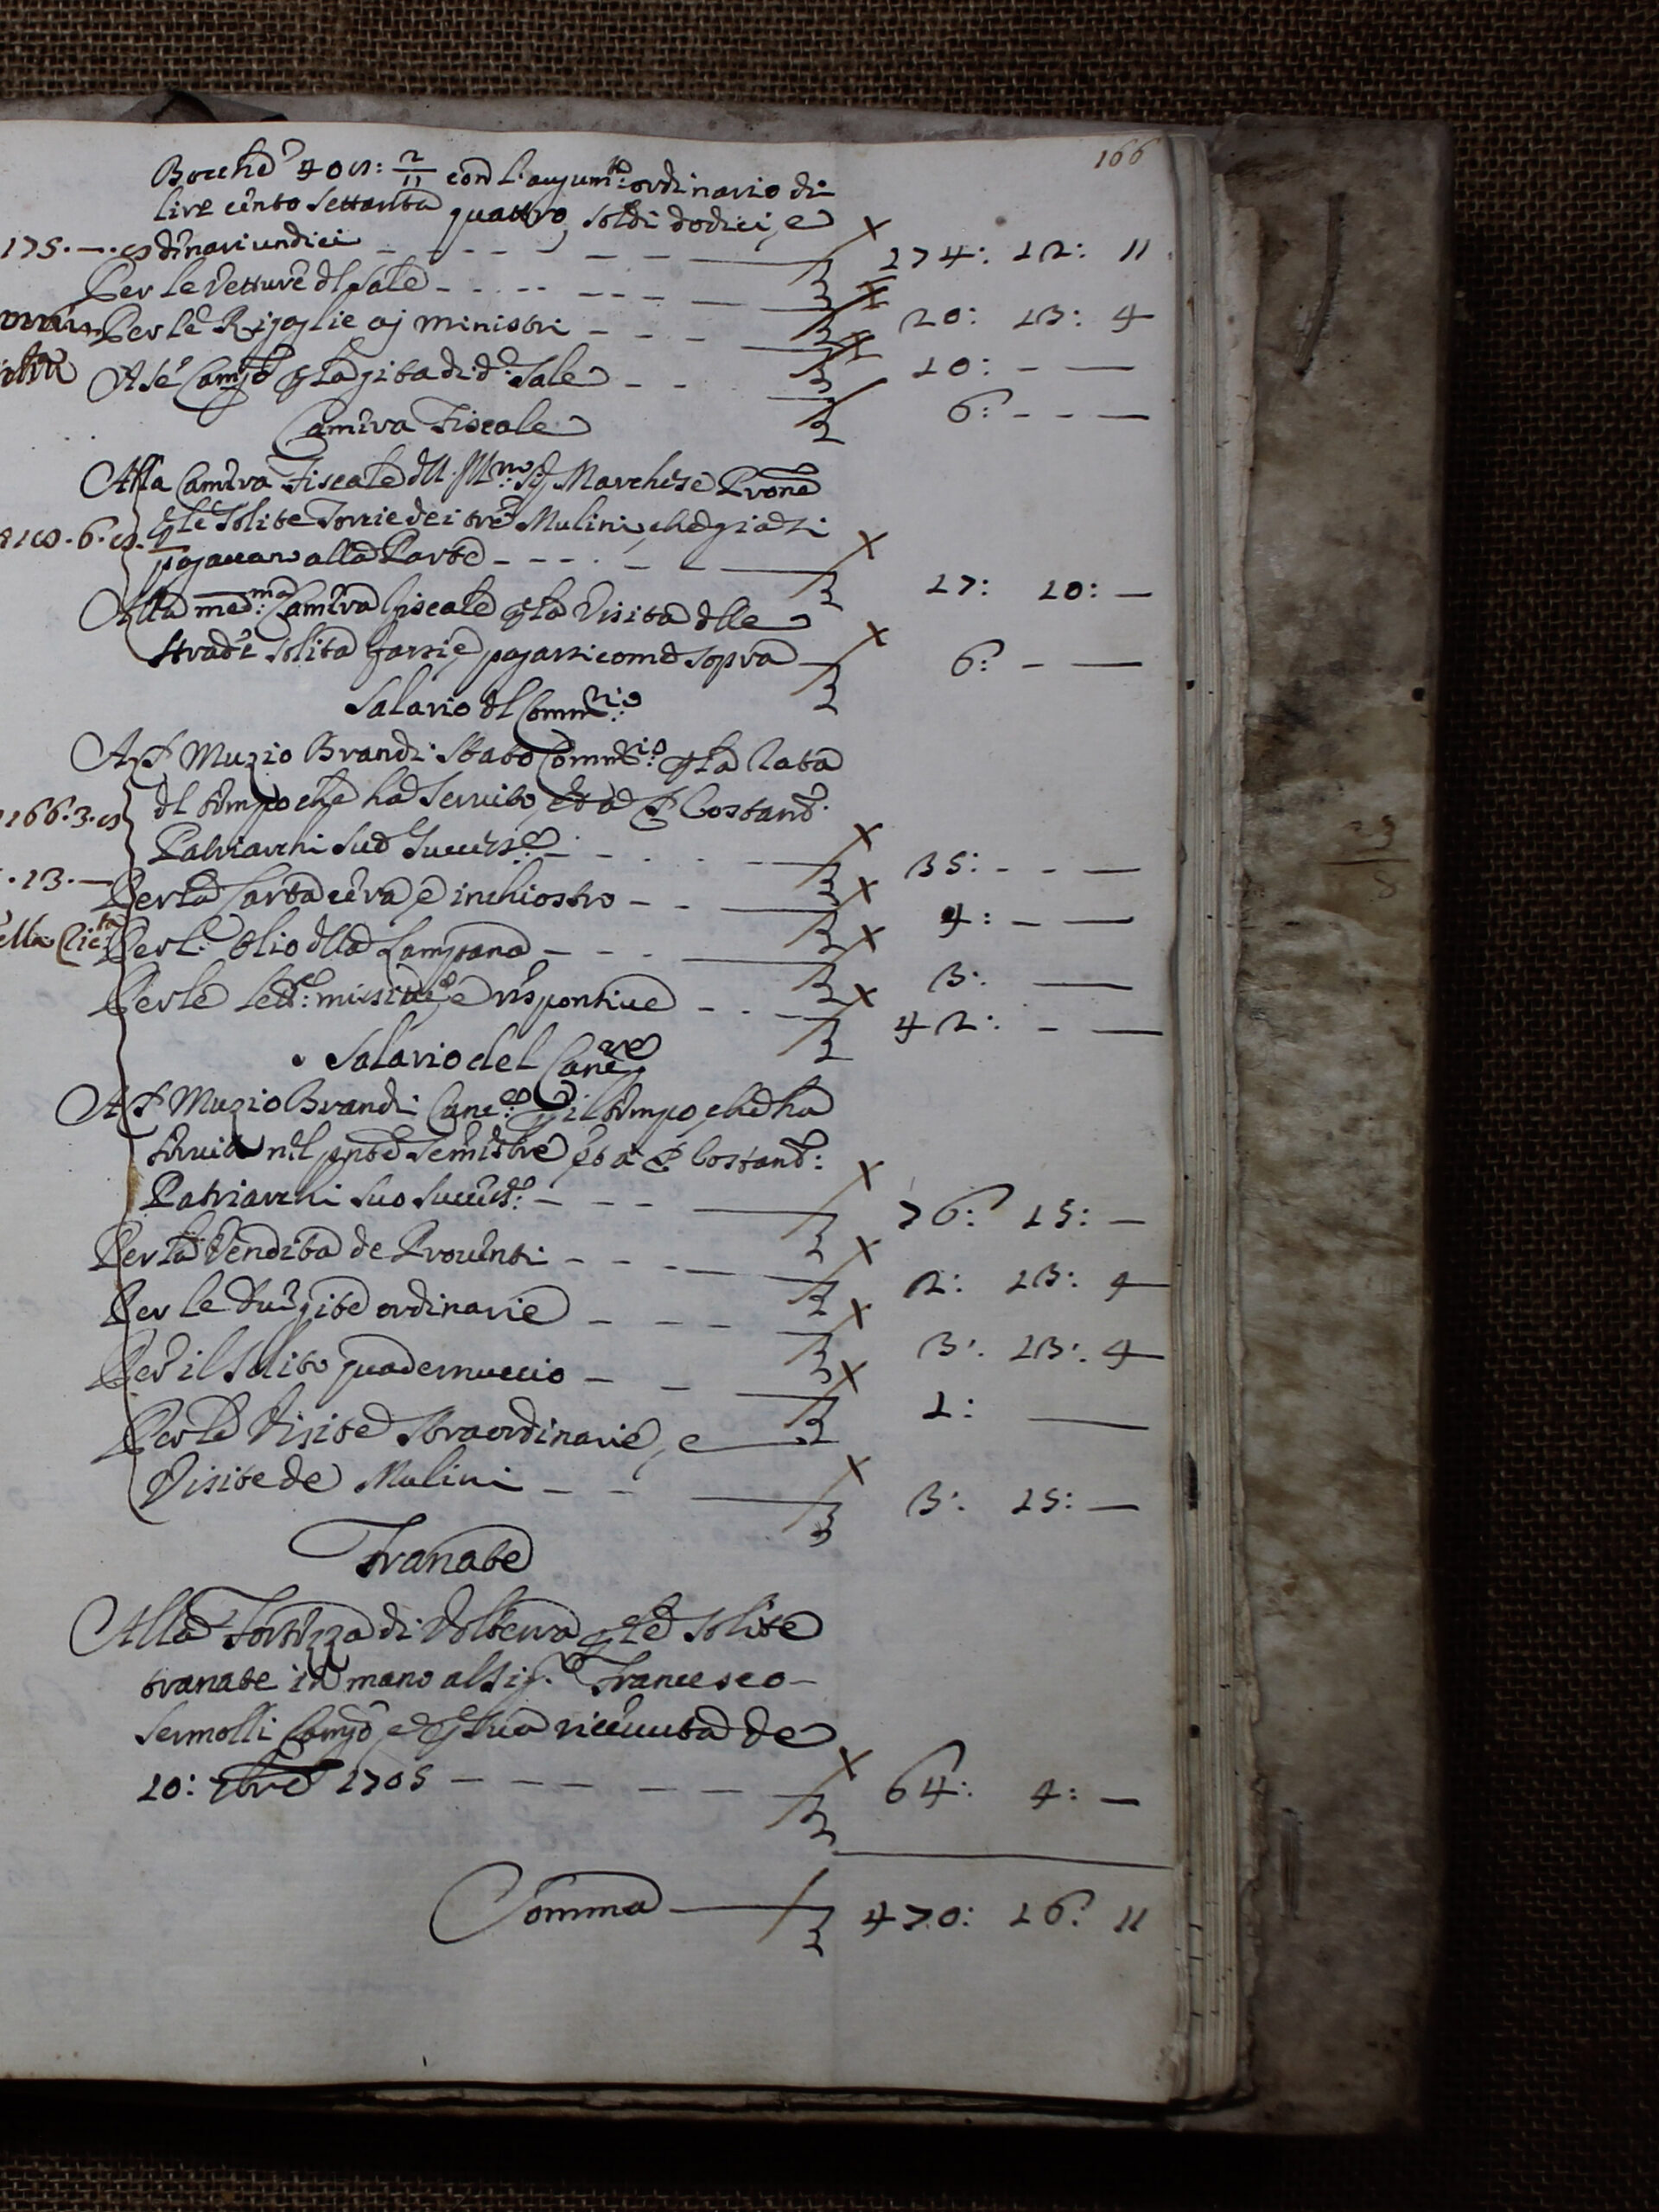 166
Bocche 408: 2/11 con l'augum.to ordinario di
lire cento settanta quattro, soldi dodici, e
175.—.8 denari undici — 174: 12: 11
Per le Vetture del Sale — 20: 13: 4
Per le Rigaglie aj ministri — 10: — —
A sé Camo.go p la gita di d.o Sale — 6: — —
Camera Fiscale
Alla Camera Fiscale dell' Ill.mo Sig. Marchese Prone
p le solite Torrie dei tre Mulini, che già si
pagavano alla Parte — 17: 10: —
Alla med.ma Camera Fiscale p la Visita delle
strade solita farsi e pagarsi come sopra — 6: — —
Salario del Comm.rio
A S Muzio Brandi stato Comm.rio p la rata
del tempo che ha servito, et ad S Costant.o
166.3.8 Patriarchi suo success.e — 35: — —
.13.— Per la Carta cera, e inchiostro — 4: — —
Per l'olio della Lampana — 3: —
Per le lett.e missive, e responsive — 42: — —
Salario del Canc.re
A S Muzio Brandi Canc.e p il tempo, che ha
servito nel pnte Semestre et a S Costant.o
Patriarchi suo success.e — 76: 15: —
Per la Vendita de Proventi — 2: 13: 4
Per le due gite ordinarie — 3: 13: 4
Per il solito quadernuccio — 1: —
Per le Visite straordinarie, e
Visite de Mulini — 3: 15: —
Tranate
Alla Fortezza di Volterra p le solite
tranate in mano al Sig.re Francesco
Sermolli Camo.go e p sua ricevuta de
10: 1705 — 64: 4: —
Somma — 470: 16: 11